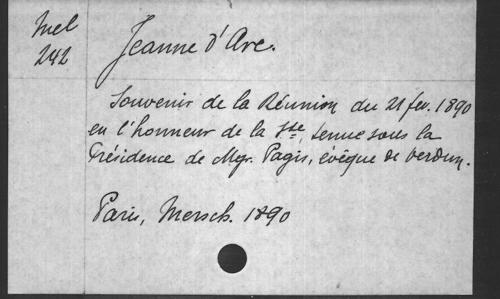 Mel
242
Jeanne d'Arc.
Souvenir de la Réunion du 21 fev. 1890
en l'honneur de la Ste, tenue sous la
Présidence de Mgr. Pagis, évêque de Verdun.
Paris, Mersch. 1890